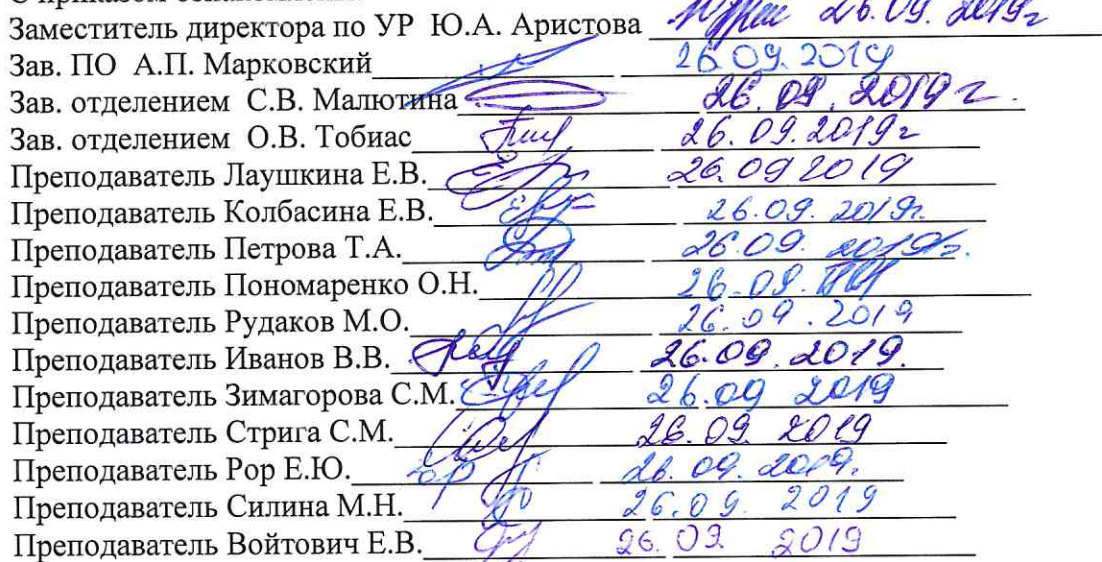 Заместитель директора по УР Ю.А. Аристова 26.09.2019г
Зав. ПО А.П. Марковский 26.09.2019
Зав. отделением С.В. Малютина 26.09.2019 г.
Зав. отделением О.В. Тобиас 26.09.2019г
Преподаватель Лаушкина Е.В. 26.09 2019
Преподаватель Колбасина Е.В. 26.09. 2019г.
Преподаватель Петрова Т.А. 26.09. 2019г.
Преподаватель Пономаренко О.Н. 26.09.
Преподаватель Рудаков М.О. 26.09.2019
Преподаватель Иванов В.В. 26.09.2019.
Преподаватель Зимагорова С.М. 26.09 2019
Преподаватель Стрига С.М. 26.09. 2019
Преподаватель Рор Е.Ю. 26.09.2019.
Преподаватель Силина М.Н. 26.09. 2019
Преподаватель Войтович Е.В. 26.09. 2019